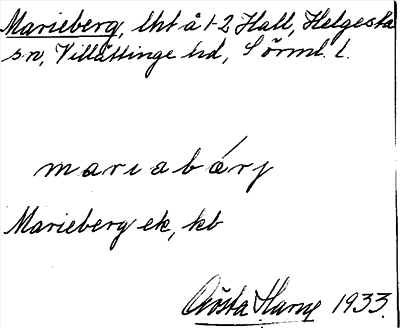 Marieberg, lht å 1-2 Hall, Helgesta
sn, Villåttinge hd, Sörml. l.
mariabárj
Marieberg ek, kb
Gösta Harne 1933.